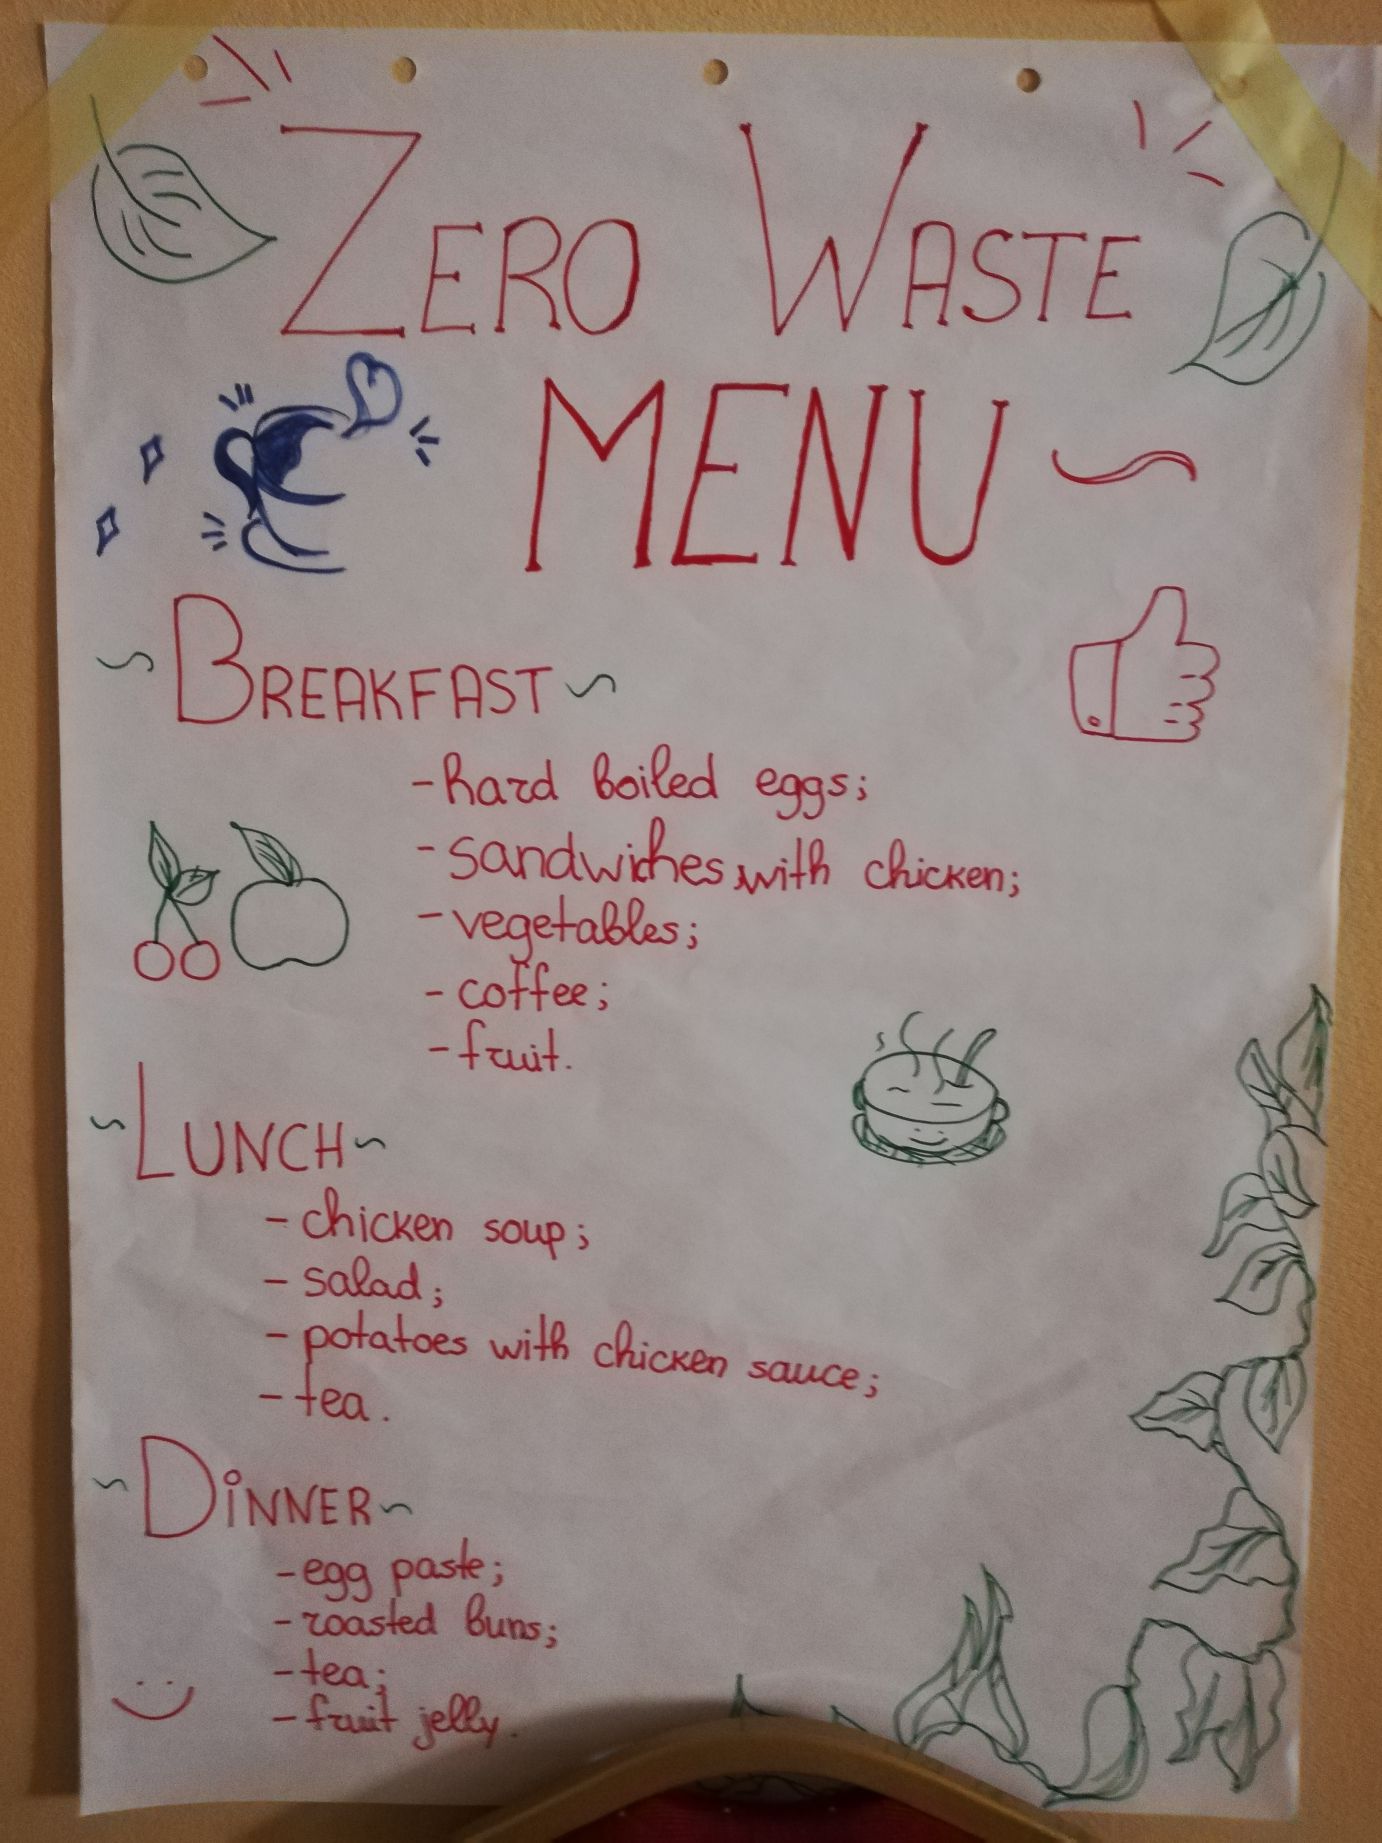 ZERO WASTE
MENU
~BREAKFAST~
-hard boiled eggs;
-sandwiches with chicken;
-vegetables;
-coffee;
-fruit.
~LUNCH~
-chicken soup;
-salad;
-potatoes with chicken sauce;
-tea.
~DiNNER~
-egg paste;
-roasted buns;
-tea;
-fruit jelly.